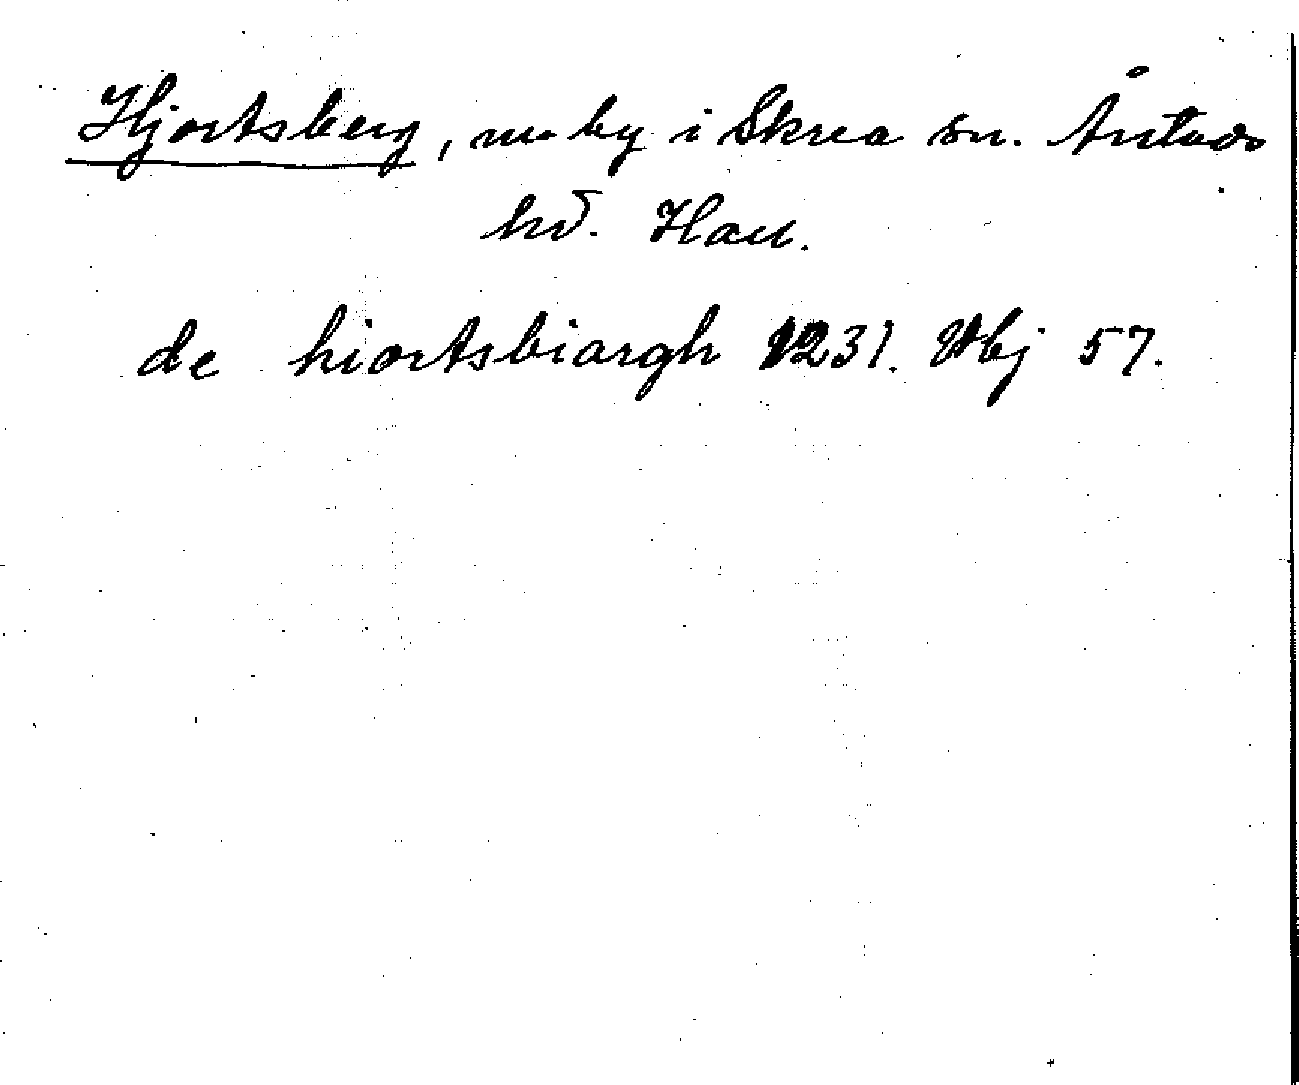 Hjortsberg, u. by i Skrea sn. Årstads
hd. Hall.
de hiortsbiargh 1231. Vbj 57.